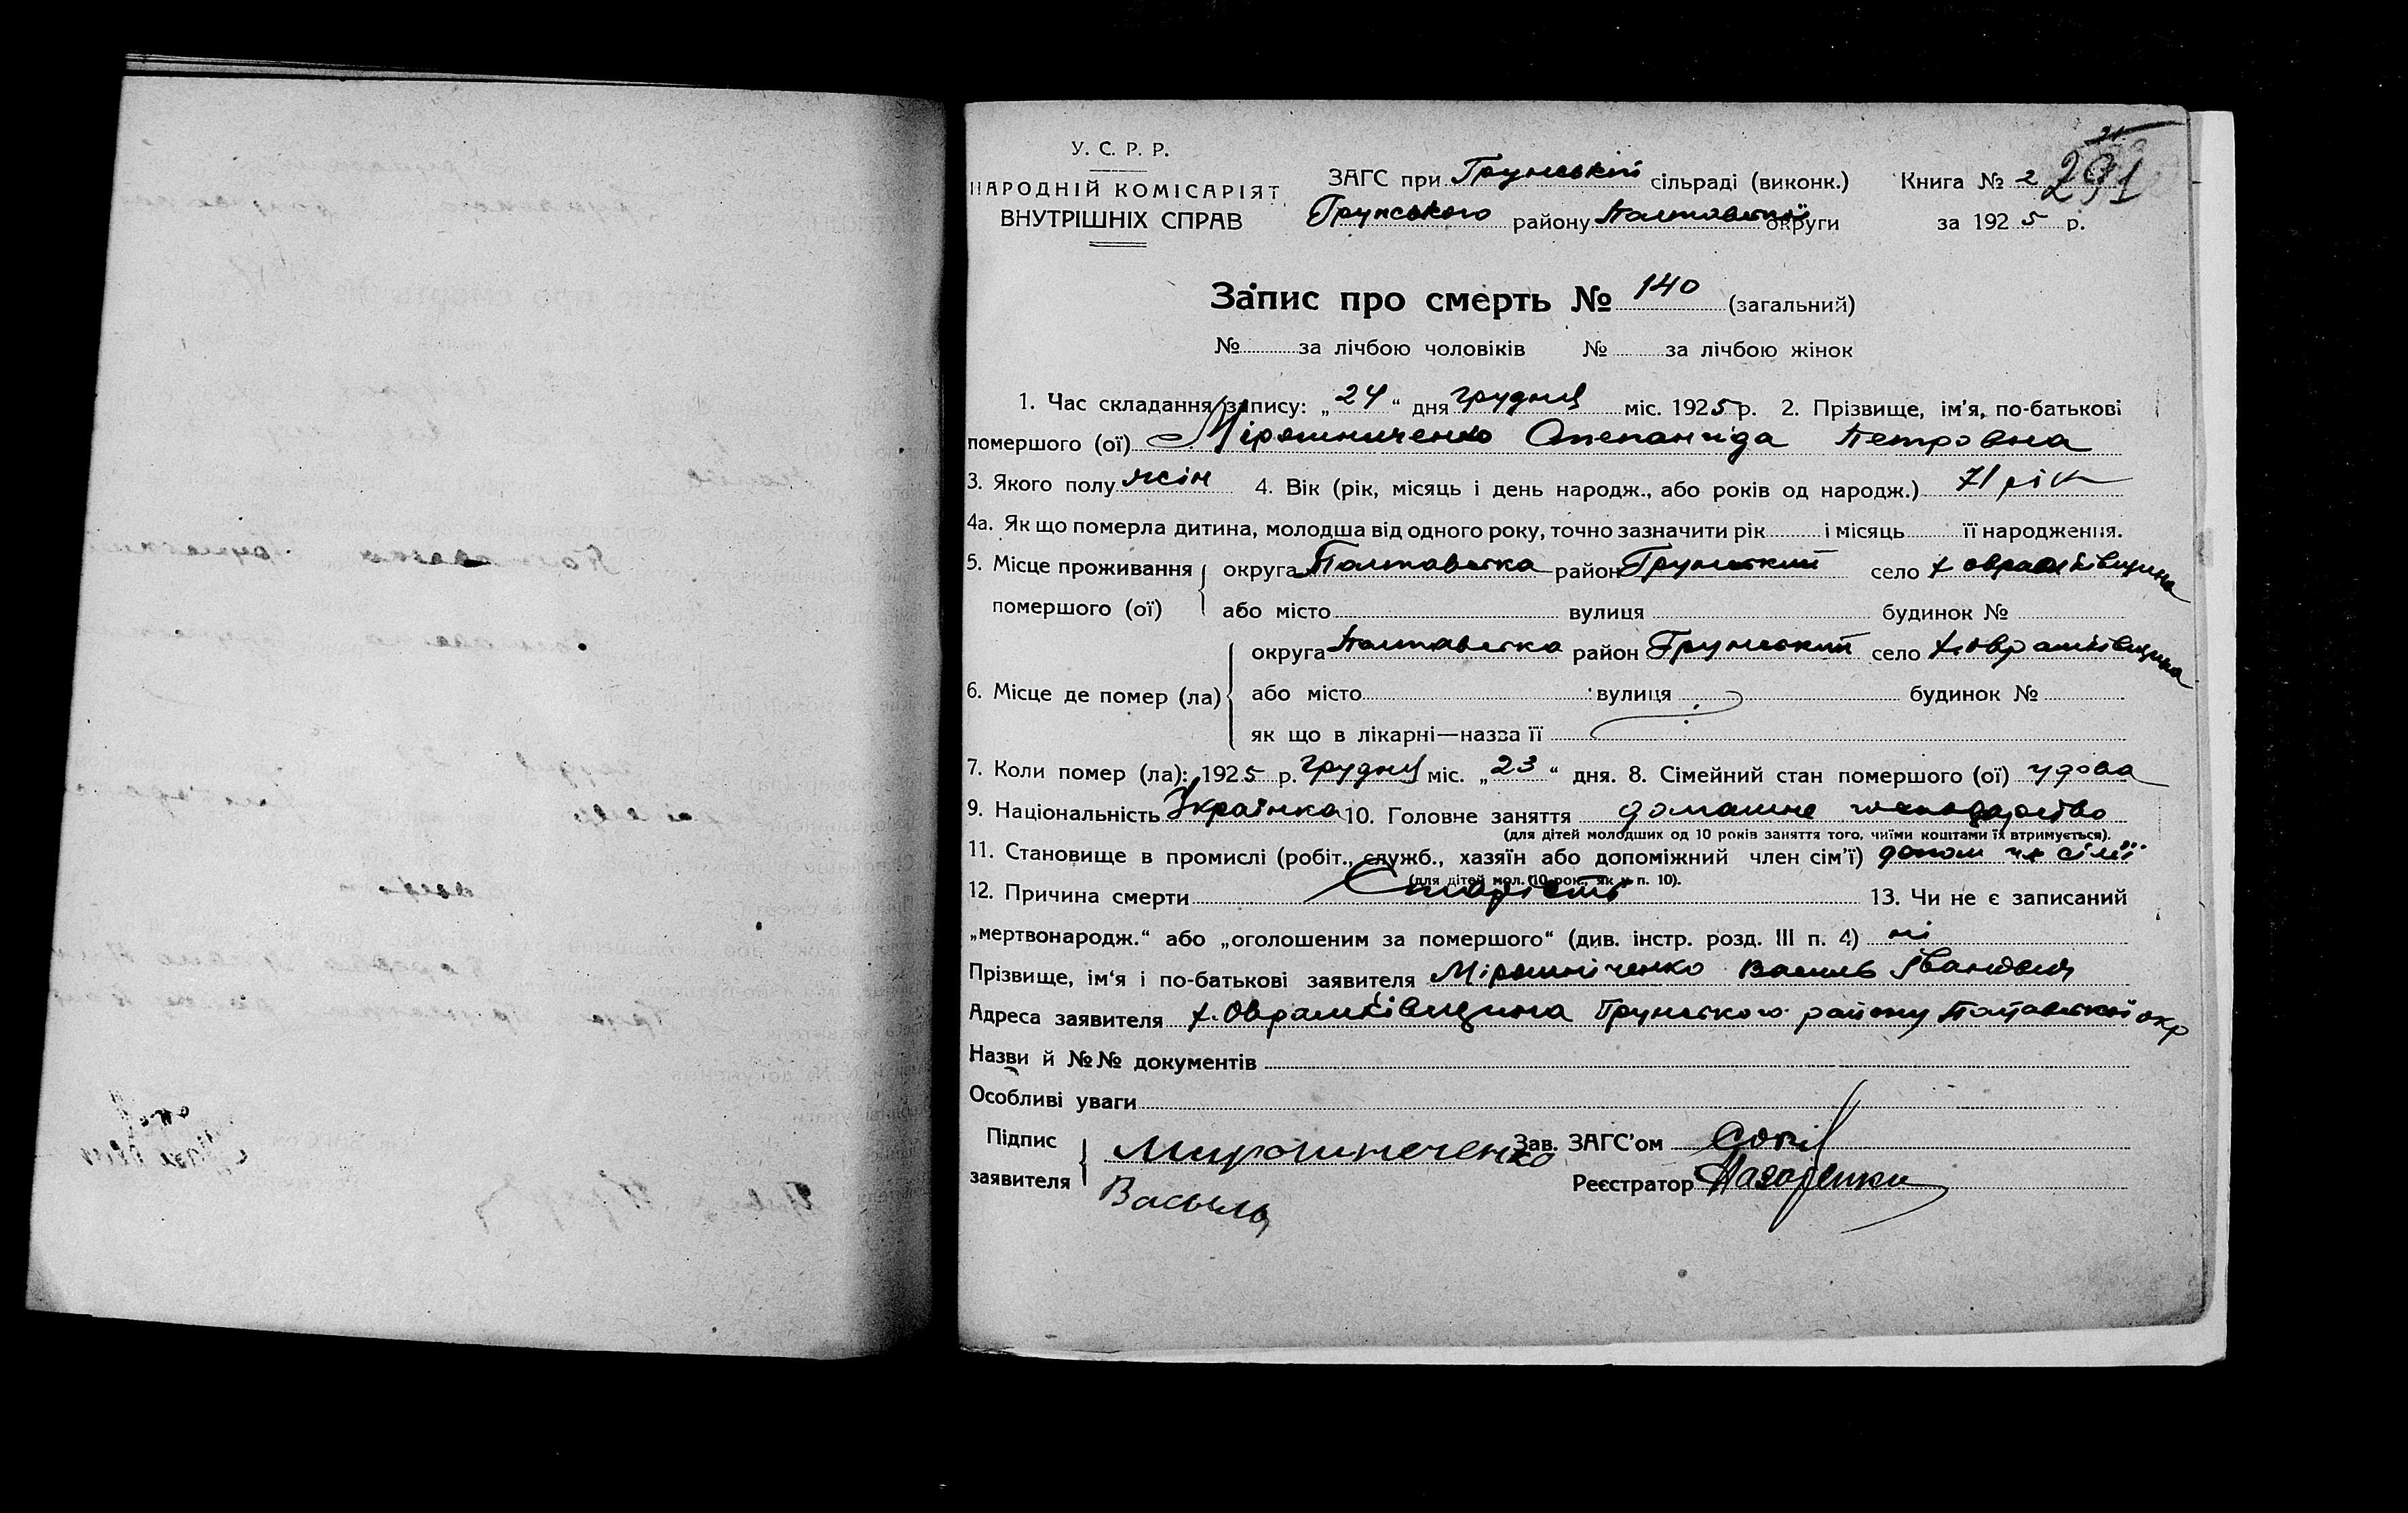 У. С. Р. Р.
НАРОДНІЙ КОМІСАРІЯТ
ВНУТРІШНІХ СПРАВ
ЗАГС при Грунській сільраді (виконк.)
Грунського району Полтавської округи
Книга № 2
291
за 1925 р.
Запис про смерть № 140 (загальний)
№ за лічбою чоловіків № за лічбою жінок
1. Час складання запису: „24“ дня грудня міс. 1925 р. 2. Прізвище, ім'я, по-батькові
помершого (ої) Мірошниченко Степанида Петровна
3. Якого полу жін 4. Вік (рік, місяць і день народж., або років од народж.) 71 рік
4а. Як що померла дитина, молодша від одного року, точно зазначити рік і місяць її народження.
5. Місце проживання помершого (ої) округа Полтавська район Грунський село х Оврамківщина
або місто вулиця будинок №
6. Місце де помер (ла) округа Полтавська район Грунський село х. Оврамківщина
або місто вулиця будинок №
як що в лікарні—назва її
7. Коли помер (ла): 1925 р. грудня міс. „23“ дня. 8. Сімейний стан помершого (ої) удова
9. Національність Українка 10. Головне заняття домашне господарство
(для дітей молодших од 10 років заняття того, чиїми коштами їх втримується).
11. Становище в промислі (робіт., служб., хазяїн або допоміжний член сім'ї) допом чл сімї
(для дітей мол. 10 рок., як у п. 10).
12. Причина смерти Старість 13. Чи не є записаний
„мертвонародж.“ або „оголошеним за помершого“ (див. інстр. розд. III п. 4) ні
Прізвище, ім'я і по-батькові заявителя Мірошніченко Василь Іванович
Адреса заявителя х. Оврамківщина Грунського району Полтавської окр
Назви й №№ документів
Особливі уваги
Підпис заявителя Мирошнеченко
Василь
Зав. ЗАГС'ом
Реєстратор Назаренко